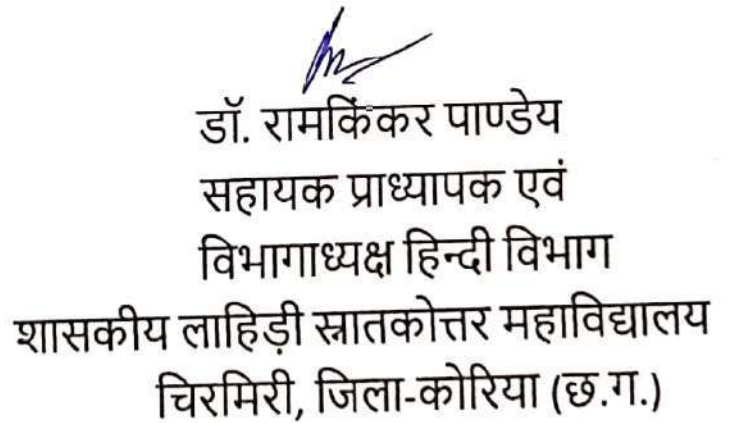 डॉ. रामकिंकर पाण्डेय
सहायक प्राध्यापक एवं
विभागाध्यक्ष हिन्दी विभाग
शासकीय लाहिड़ी स्नातकोत्तर महाविद्यालय
चिरमिरी, जिला-कोरिया (छ.ग.)